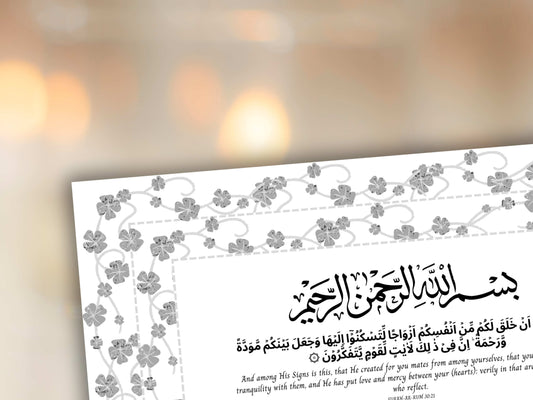 بسم الله الرحمن الرحيم
أَنْ خَلَقَ لَكُم مِّنْ أَنْفُسِكُمْ أَزْوَاجًا لِّتَسْكُنُوٓا إِلَيْهَا وَجَعَلَ بَيْنَكُم مَّوَدَّةً
وَّرَحْمَةً ۚ اِنَّ فِيْ ذٰ لِكَ لَاٰيٰتٍ لِّقَوْمٍ يَّتَفَكَّرُوْنَ ۝
And among His Signs is this, that He created for you mates from among yourselves, that you
tranquility with them, and He has put love and mercy between your (hearts); verily in that are
who reflect.
SURAH-AR-RUM 30:21